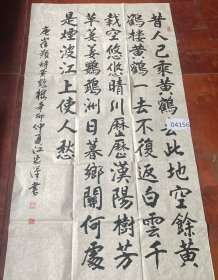 昔人已乘黄鶴去此地空餘黄
鶴楼黄鶴一去不復返白雲千
載空悠悠晴川歷歷漢陽樹芳
草萋萋鸚鵡洲日暮鄉關何處
是煙波江上使人愁
唐崔顥詩黄鶴樓辛卯仲夏江書
04156